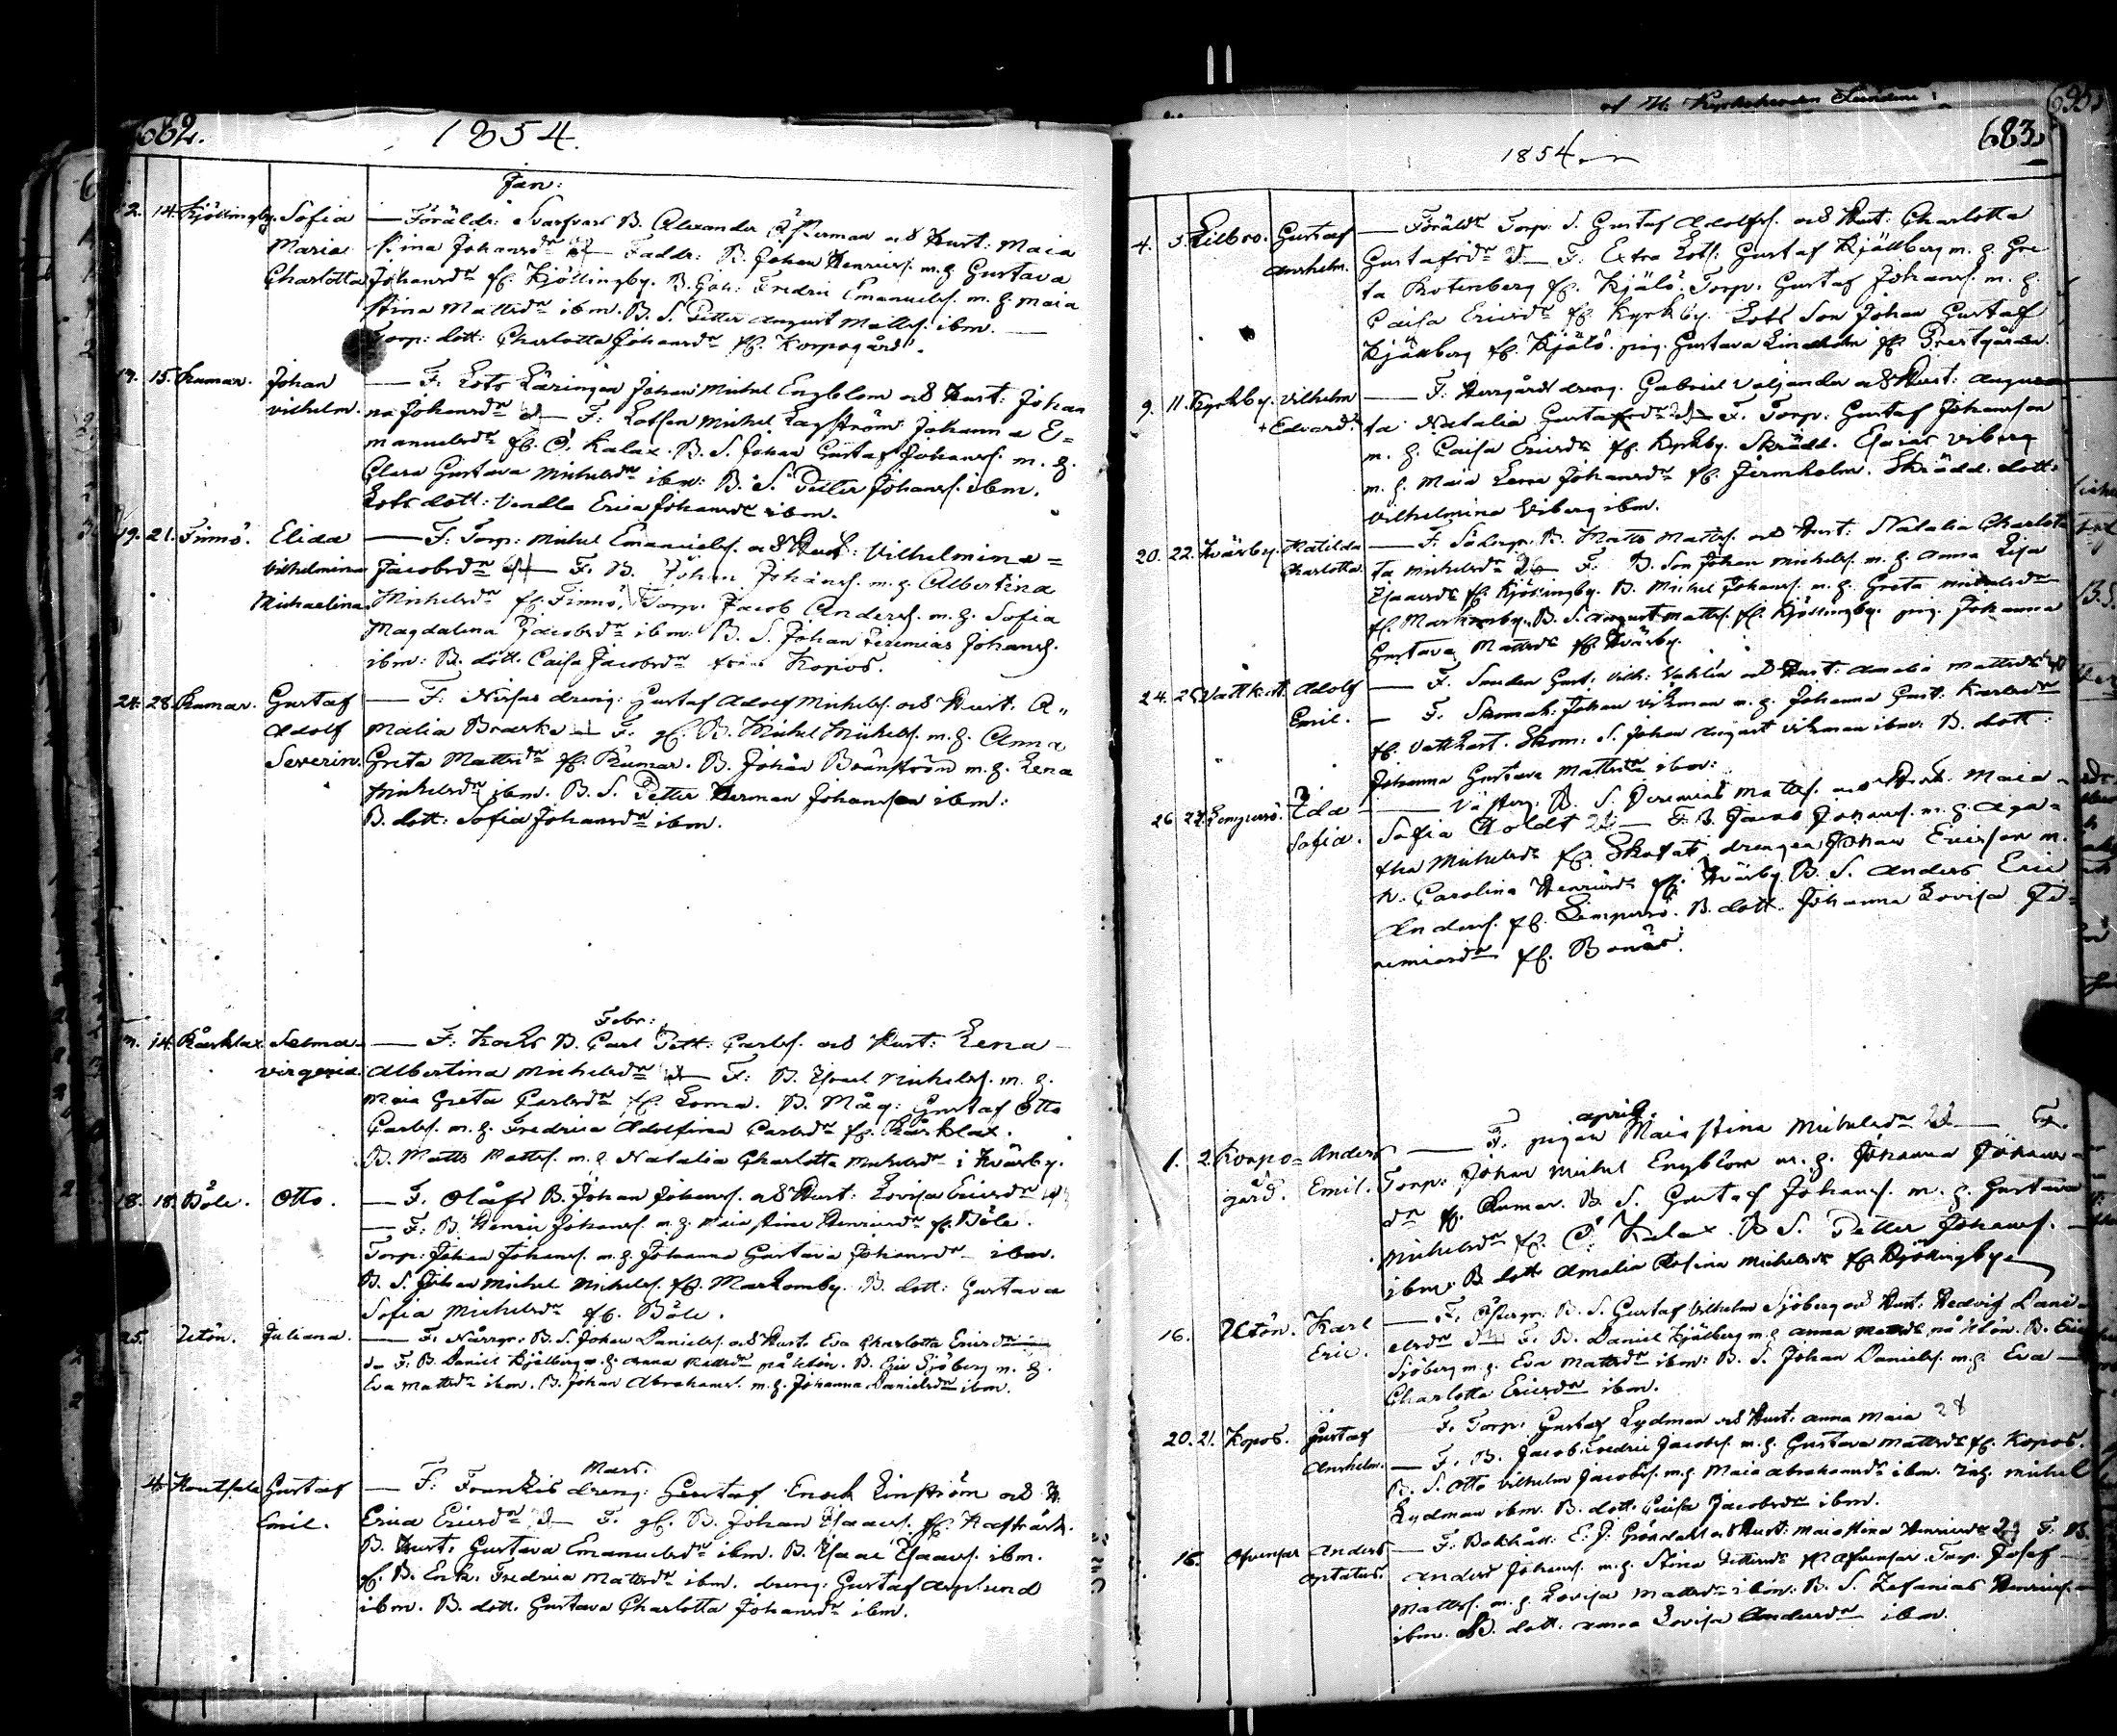 682.
1854.
Jan:
12. 14. Kjöllingby. Sofia Maria Charlotta
— Föräldr: Svarfvars B. Alexander Åkerman och Hust: Maia
Stina Johansdr — Faddr: B. Johan Henricss. m. h. Gustava
Johansdr fr. Kjöllingby. B. Joh: Fredric Emanuelss. m. h. Maia
Stina Mattsdr ibm. B. S. Petter August Mattss. ibm. —
Torp: dott: Charlotta Johansdr fr. Korpogård.
15. Rumar. Johan Vilhelm.
— F. Lots Läringen Johan Michel Engblom och Hust: Johan
na Johansdr — F: Lotsen Michel Lagström Johanna E=
manuelsdr fr. Ö. Kalax. B. S. Johan Gustaf Johanss. m. h.
Clara Gustava Michelsdr ibm: B. S. Petter Johanss. ibm.
Lots dott: Vendla Erica Johansdr ibm.
19. 21. Finnö. Elida Vilhelmina Michaelina
— F. Torp: Michel Emanuelss. och Hust: Vilhelmina =
Jacobsdr — F. B. Johan Johanss. m. h. Albertina
Michelsdr fr. Finnö, Torp. Jacob Anderss. m. h. Sofia
Magdalena Jacobsdr ibm: B. S. Johan Jeremias Johanss.
ibm: B. dott. Caisa Jacobsdr från Kopos.
24. 28. Rumar. Gustaf Adolf Severin.
— F. Nisfas dreng: Gustaf Adolf Michelss. och Hust. A„
malia — F. B. Michel Michelss. m. h. Anna
Greta Mattsdr fr. Rumar. B. Johan Bränström m. h. Lena
Michelsdr ibm. B. S. Petter Herman Johansson ibm:
B. dott: Sofia Johansdr ibm.
Febr:
14. Kårklax. Selma Virginia.
— F. Kocks B. Carl Pett: Carlss. och Hust: Lena
Albertina Michelsdr — F: B. Isaac Michelss. m. h.
Maia Greta Carlsdr fr. Loma. B. Måg: Gustaf Otto
Carlss. m. h. Fredrica Adolfina Carlsdr fr. Kårklax.
B. Matts Mattss. m. h. Natalia Charlotta Michelsdr i Kvärby.
18. 18. Böle. Otto.
— F. Olåfs B. Johan Johanss. och Hust: Lovisa Ericsdr
— F: B. Henric Johanss. m. h. Maia Stina Henricsdr fr. Böle.
Torp: Johan Johanss. m. h. Johanna Gustava Johansdr ibm.
B. S. Johan Michel Michelss. fr. Markomby. B. dott: Gustava
Sofia Michelsdr fr. Böle.
25. Utön. Juliana.
— F. Nårrgr: B. S. Johan Danielss. och Hust. Eva Charlotta Ericsdr
F. B. Daniel Kjälberg m. h. Anna Mattsdr på Utön. B. Eric Sjöberg m. h.
Eva Mattsdr ibm. B. Johan Abrahamss. m. h. Johanna Danielsdr ibm.
Mars.
Gustaf Emil.
— F: Frankis dreng: Gustaf Enoch Linström och H.
Erica Ericsdr — F. B. Johan Isaacss. fr.
B. Hust: Gustava Emanuelsdr ibm. B. Isaac Isaacss. ibm.
B. Enk. Fredrica Mattsdr ibm. dreng: Gustaf Asplund
ibm. B. dott. Gustava Charlotta Johansdr ibm.
683.
1854
4. 5. Lilbro. Gustaf Anshelm.
— Föräldr Torp. S. Gustaf Adolfss. och Hust. Charlotta
Gustafsdr — F: Extra Lots: Gustaf Kjällberg m. h. Gre
ta Rotenberg fr. Kjälö. Torp. Gustaf Johanss. m. h.
Caisa Ericsdr fr. Kyrkby. Lots Son Johan Gustaf
Kjällberg fr. Kjälö. pig. Gustava Lindholm fr. Prestgården.
9. 11. Kyrkby. Vilhelm Edvard.
— F. Herrgårds dreng. Gabriel Valjander och Hust: Augus
ta Natalia Gustafsdr — F. Torp: Gustaf Johansson
m. h. Caisa Ericsdr fr. Kyrkby. Skrädd. Esaias Viberg
m. h. Maia Lena Johansdr fr. Jermholm. Skrädd. dott:
Vilhelmina Viberg ibm.
20. 22. Kvärby. Matilda Charlotta.
— F. Södergr. B. Matts Mattss. och Hust: Natalia Charlot
ta Michelsdr — F: B. Son Johan Michelss. m. h. Anna Lisa
Isaacsdr fr. Kjöllingby. B. Michel Johanss. m. h. Greta Michelsdr
fr. Markomby. B. S. August Mattss. fr. Kjöllingby. pig. Johanna
Gustava Mattsdr fr. Kvärby.
24. 25. Vattkast. Adolf Emil.
— F. Smeden Gust: Vilh: Vahlén och Hust: Amalia Mattsdr
— F. Skomak: Johan Vikman m. h. Johanna Gust: Karlsdr
fr. Vattkast. Skom: S. Johan August Vikman ibm. B. dott:
Johanna Gustava Mattsdr ibm:
26. 27. Lempersö. Ida Sofia.
— Västerg: B. S. Jeremias Mattss. och Hust. Maia
Sofia — F. B. Jacob Johanss. m. h. Aga=
tha Michelsdr fr. drengen Johan Ericsson m.
h. Carolina Henricsdr fr. Kvärby. B. S. Anders Eric
Anderss. fr. Lempersö. B. dott. Johanna Lovisa Je=
remiasdr fr. Bonäs.
April.
1. 2. Korpo= gård. Anders Emil.
— F. pigan Maia Stina Michelsdr — F.
Torp: Johan Michel Engblom m. h. Johanna Johans
dr fr. Rumar. B. S. Gustaf Johanss. m. h. Gustava
Michelsdr fr. Ö. Kalax. B. S. Petter Johanss. —
ibm: B. dott Amalia Rosina Michelsdr fr. Kjöllingby
16. Utön. Karl Eric.
— F. Östergr: B. S. Gustaf Vilhelm Sjöberg och Hust. Hedvig Dani
elsdr — F. B. Daniel Kjälberg m. h. Anna Mattsdr på Utön. B. Eric
Sjöberg m. h. Eva Mattsdr ibm: B. S. Johan Danielss. m. h. Eva —
Charlotta Ericsdr ibm.
20. 21. Kopos. Gustaf Anshelm.
F. Torp: Gustaf Lydman och Hust: Anna Maia 28
— F. B. Jacob Fredric Jacobss. m. h. Gustava Mattsdr fr. Kopos.
B. S. Otto Vilhelm Jacobss. m. h. Maia Abrahamsdr ibm. Michel
Lydman ibm. B. dott. Caisa Jacobsdr ibm.
16. Afvensar Anders Optatus.
— F. Bokhåll: E. J. Gröndahl och Hust: Maia Stina Henricsdr F. B.
Anders Johanss. m. h. Stina Pettersdr fr. Afvensar. Torp. Josef
Mattss. m. h. Lovisa Mattsdr ibm. B. S. Zefanias Henricss.
ibm. B. dott. Anna Lovisa Andersdr ibm.